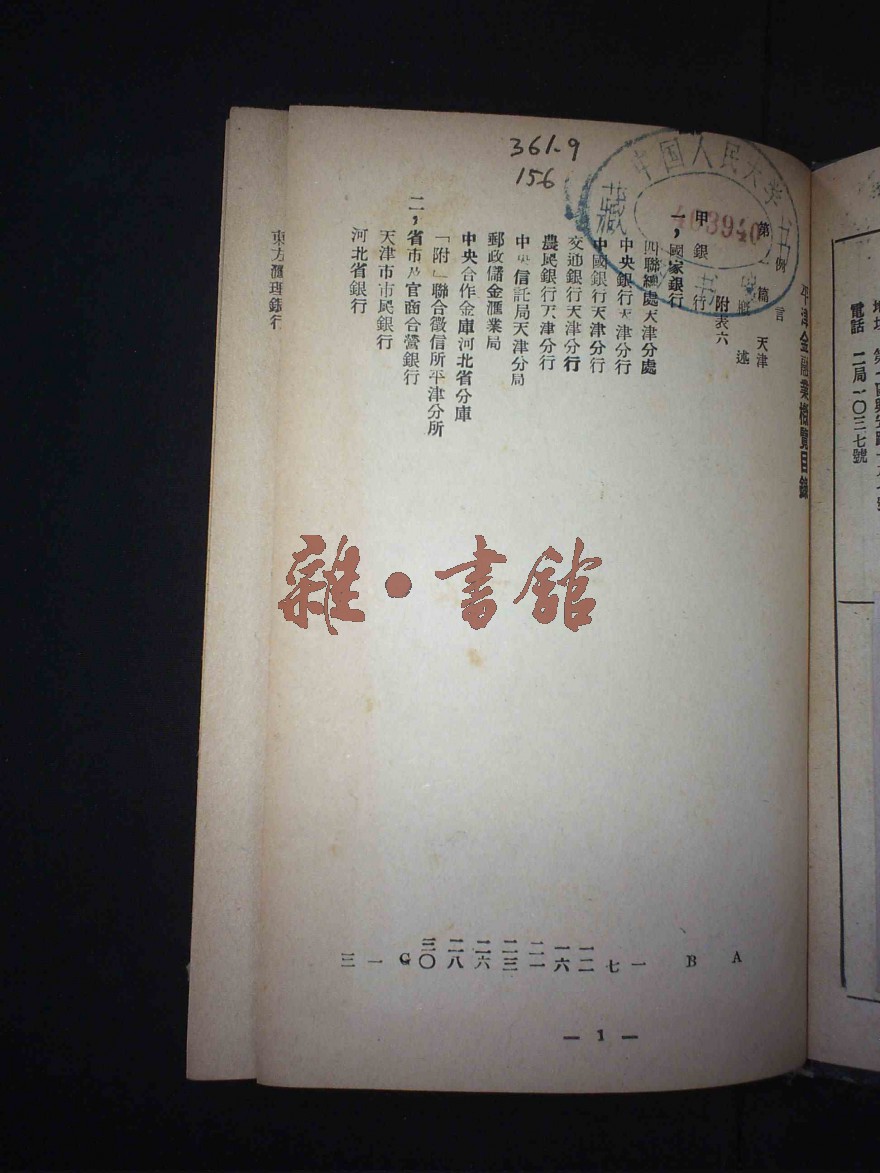 電話 二局一〇三七號
平津金融業概覽目錄
例言
A
第一篇 天津
概述
B
附表六
甲 銀行
一，國家銀行
四聯總處天津分處
一
中央銀行天津分行
七
中國銀行天津分行
一二
交通銀行天津分行
一六
農民銀行天津分行
二一
中央信託局天津分局
二三
郵政儲金滙業局
二六
中央合作金庫河北省分庫
二八
「附」聯合徵信所平津分所
三〇
二，省市及官商合營銀行
G
天津市市民銀行
一
河北省銀行
三
— 1 —
東方滙理銀行
361.9
156
中国人民大学
藏
403940
雜·書館